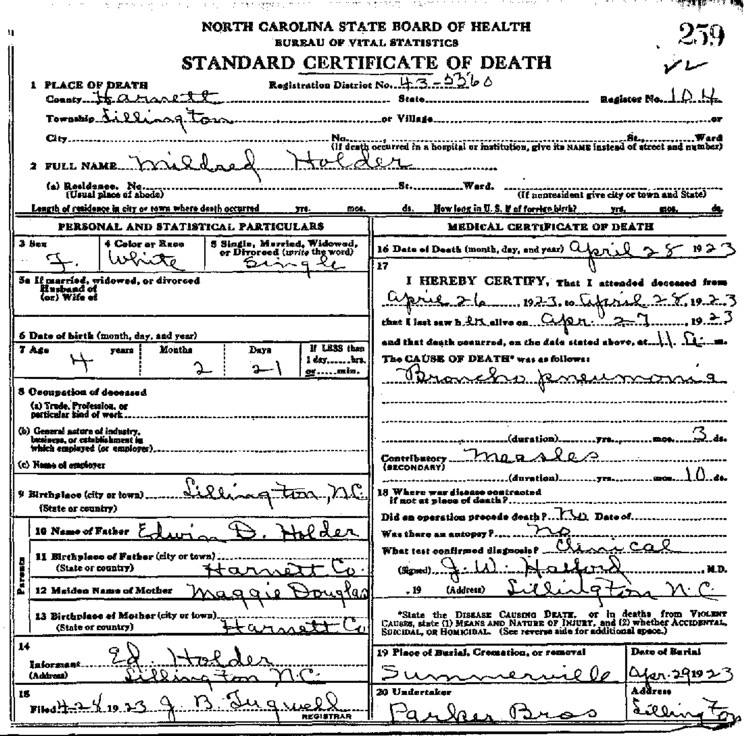 NORTH CAROLINA STATE BOARD OF HEALTH
BUREAU OF VITAL STATISTICS
259
STANDARD CERTIFICATE OF DEATH
1 PLACE OF DEATH Registration District No. 43-5360
County Harnett State Register No. 104
Township Lillington or Village or
City No. St., Ward
(If death occurred in a hospital or institution, give its NAME instead of street and number)
2 FULL NAME Mildred Holder
(a) Residence. No. St. Ward.
(Usual place of abode) (If nonresident give city or town and State)
Length of residence in city or town where death occurred yrs. mos. ds. How long in U. S. if of foreign birth? yrs. mos. ds.
PERSONAL AND STATISTICAL PARTICULARS
3 Sex 4 Color or Race 5 Single, Married, Widowed,
or Divorced (write the word)
F. White Single
5a If married, widowed, or divorced
Husband of
(or) Wife of
6 Date of birth (month, day, and year)
7 Age years Months Days If LESS than
1 day,......hrs.
or......min.
4 2 21
8 Occupation of deceased
(a) Trade, Profession, or
particular kind of work
(b) General nature of industry,
business, or establishment in
which employed (or employer)
(c) Name of employer
9 Birthplace (city or town) Lillington, N.C.
(State or country)
Parents
10 Name of Father Edwin D. Holder
11 Birthplace of Father (city or town)
(State or country) Harnett Co.
12 Maiden Name of Mother Maggie Douglas
13 Birthplace of Mother (city or town)
(State or country) Harnett Co
14
Informant Ed. Holder
(Address) Lillington N.C.
15
Filed 4-28 1923 J. B. Tugwell
REGISTRAR
MEDICAL CERTIFICATE OF DEATH
16 Date of Death (month, day, and year) April 28 1923
17
I HEREBY CERTIFY, That I attended deceased from
April 26, 1923, to April 28, 1923
that I last saw her alive on Apr. 27, 1923
and that death occurred, on the date stated above, at 11 a. m.
The CAUSE OF DEATH* was as follows:
Broncho pneumonia
(duration) yrs. mos. 3 ds.
Contributory Measles
(SECONDARY)
(duration) yrs. mos. 10 ds.
18 Where was disease contracted
if not at place of death?
Did an operation precede death? No Date of
Was there an autopsy? no
What test confirmed diagnosis? Clinical
(Signed) J. W. Halford M.D.
, 19 (Address) Lillington N.C
*State the DISEASE CAUSING DEATH, or in deaths from VIOLENT
CAUSES, state (1) MEANS AND NATURE OF INJURY, and (2) whether ACCIDENTAL,
SUICIDAL, OR HOMICIDAL. (See reverse side for additional space.)
19 Place of Burial, Cremation, or removal Date of Burial
Summerville Apr. 29 1923
20 Undertaker Address
Parker Bros Lillington